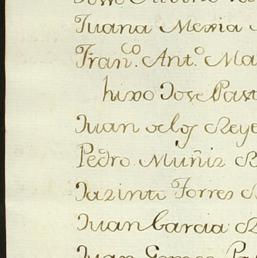 Juana Mexia
Fran^co. Ant^o. Ma
hixo Jose Past
Juan delos Reye
Pedro Muñis R
Jazinto Torres
Juan Garcia
Juan Gomes Pa